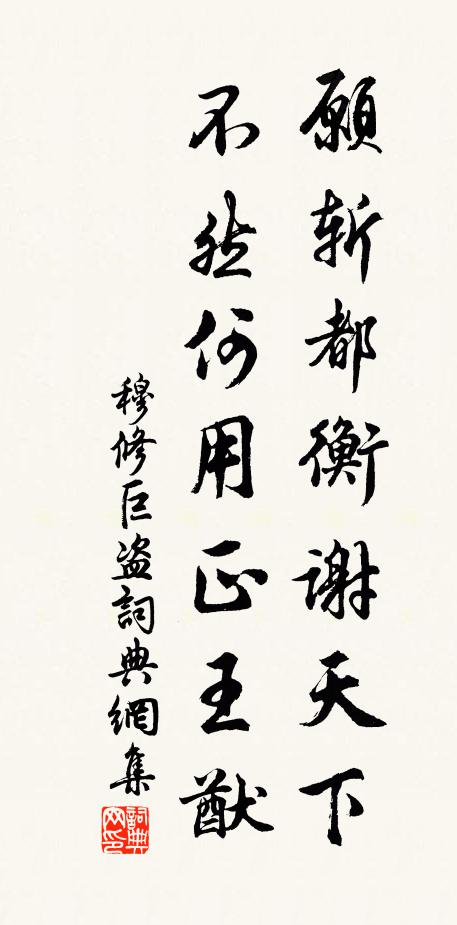 願斬都衡謝天下
不然何用正王猷
穆修巨盗詞典網集
詞典网印